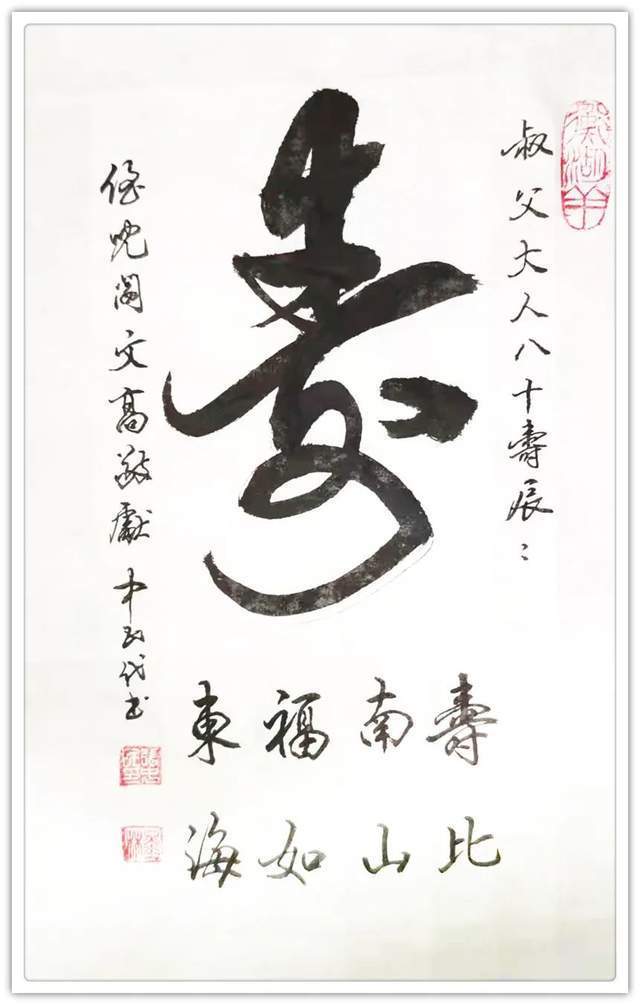 叔父大人八十壽辰
壽
壽比
南山
福如
東海
侄兒文高敬獻 代书